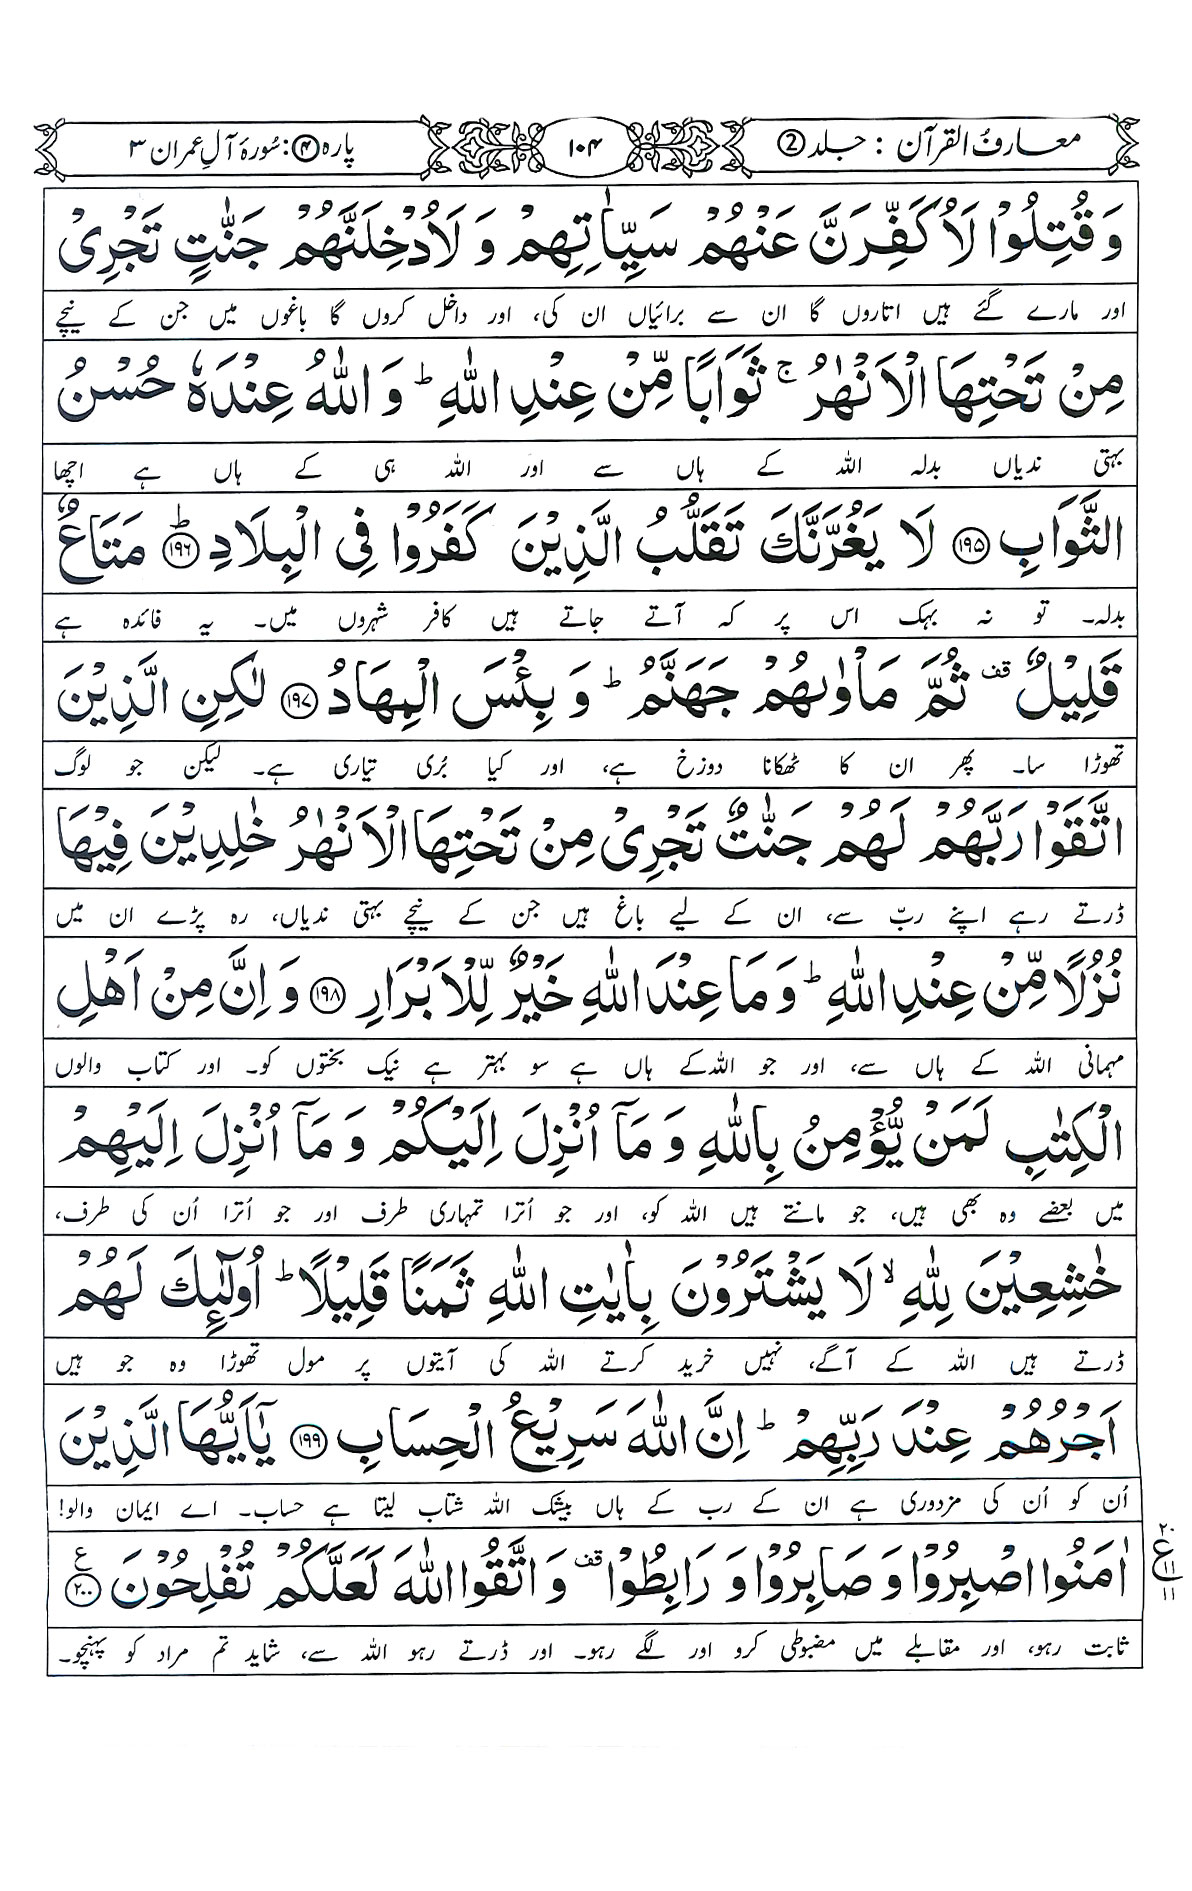 معارفُ القرآن : جلد ②
۱۰۴
پارہ ④: سُورۂ آلِ عمران ۳
وَ قُتِلُوْا لَاُكَفِّرَنَّ عَنْهُمْ سَيِّاٰتِهِمْ وَ لَاُدْخِلَنَّهُمْ جَنّٰتٍ تَجْرِیْ
اور مارے گئے ہیں اتاروں گا ان سے برائیاں ان کی، اور داخل کروں گا باغوں میں جن کے نیچے
مِنْ تَحْتِهَا الْاَنْهٰرُ ۚ ثَوَابًا مِّنْ عِنْدِ اللّٰهِ ؕ وَ اللّٰهُ عِنْدَهٗ حُسْنُ
بہتی ندیاں بدلہ اللہ کے ہاں سے اور اللہ ہی کے ہاں ہے اچھا
الثَّوَابِ ﴿۱۹۵﴾ لَا يَغُرَّنَّكَ تَقَلُّبُ الَّذِيْنَ كَفَرُوْا فِی الْبِلَادِ ؕ﴿۱۹۶﴾ مَتَاعٌ
بدلہ۔ تو نہ بہک اس پر کہ آتے جاتے ہیں کافر شہروں میں۔ یہ فائدہ ہے
قَلِيْلٌ ۟ ثُمَّ مَاْوٰىهُمْ جَهَنَّمُ ؕ وَ بِئْسَ الْمِهَادُ ﴿۱۹۷﴾ لٰكِنِ الَّذِيْنَ
تھوڑا سا۔ پھر ان کا ٹھکانا دوزخ ہے، اور کیا بُری تیاری ہے۔ لیکن جو لوگ
اتَّقَوْا رَبَّهُمْ لَهُمْ جَنّٰتٌ تَجْرِیْ مِنْ تَحْتِهَا الْاَنْهٰرُ خٰلِدِيْنَ فِيْهَا
ڈرتے رہے اپنے ربّ سے، ان کے لیے باغ ہیں جن کے نیچے بہتی ندیاں، رہ پڑے ان میں
نُزُلًا مِّنْ عِنْدِ اللّٰهِ ؕ وَ مَا عِنْدَ اللّٰهِ خَيْرٌ لِّلْاَبْرَارِ ﴿۱۹۸﴾ وَ اِنَّ مِنْ اَهْلِ
مہمانی اللہ کے ہاں سے، اور جو اللہ کے ہاں ہے سو بہتر ہے نیک بختوں کو۔ اور کتاب والوں
الْكِتٰبِ لَمَنْ يُّؤْمِنُ بِاللّٰهِ وَ مَاۤ اُنْزِلَ اِلَيْكُمْ وَ مَاۤ اُنْزِلَ اِلَيْهِمْ
میں بعضے وہ بھی ہیں، جو مانتے ہیں اللہ کو، اور جو اُترا تمہاری طرف اور جو اُترا اُن کی طرف،
خٰشِعِيْنَ لِلّٰهِ ۙ لَا يَشْتَرُوْنَ بِاٰيٰتِ اللّٰهِ ثَمَنًا قَلِيْلًا ؕ اُولٰٓئِكَ لَهُمْ
ڈرتے ہیں اللہ کے آگے، نہیں خرید کرتے اللہ کی آیتوں پر مول تھوڑا وہ جو ہیں
اَجْرُهُمْ عِنْدَ رَبِّهِمْ ؕ اِنَّ اللّٰهَ سَرِيْعُ الْحِسَابِ ﴿۱۹۹﴾ يٰۤاَيُّهَا الَّذِيْنَ
اُن کو اُن کی مزدوری ہے ان کے رب کے ہاں بیشک اللہ شتاب لیتا ہے حساب۔ اے ایمان والو!
اٰمَنُوا اصْبِرُوْا وَ صَابِرُوْا وَ رَابِطُوْا ۟ وَ اتَّقُوا اللّٰهَ لَعَلَّكُمْ تُفْلِحُوْنَ ﴿۲۰۰﴾ ع
۲۰
ع ۱۱
۱۱
ثابت رہو، اور مقابلے میں مضبوطی کرو اور لگے رہو۔ اور ڈرتے رہو اللہ سے، شاید تم مراد کو پہنچو۔